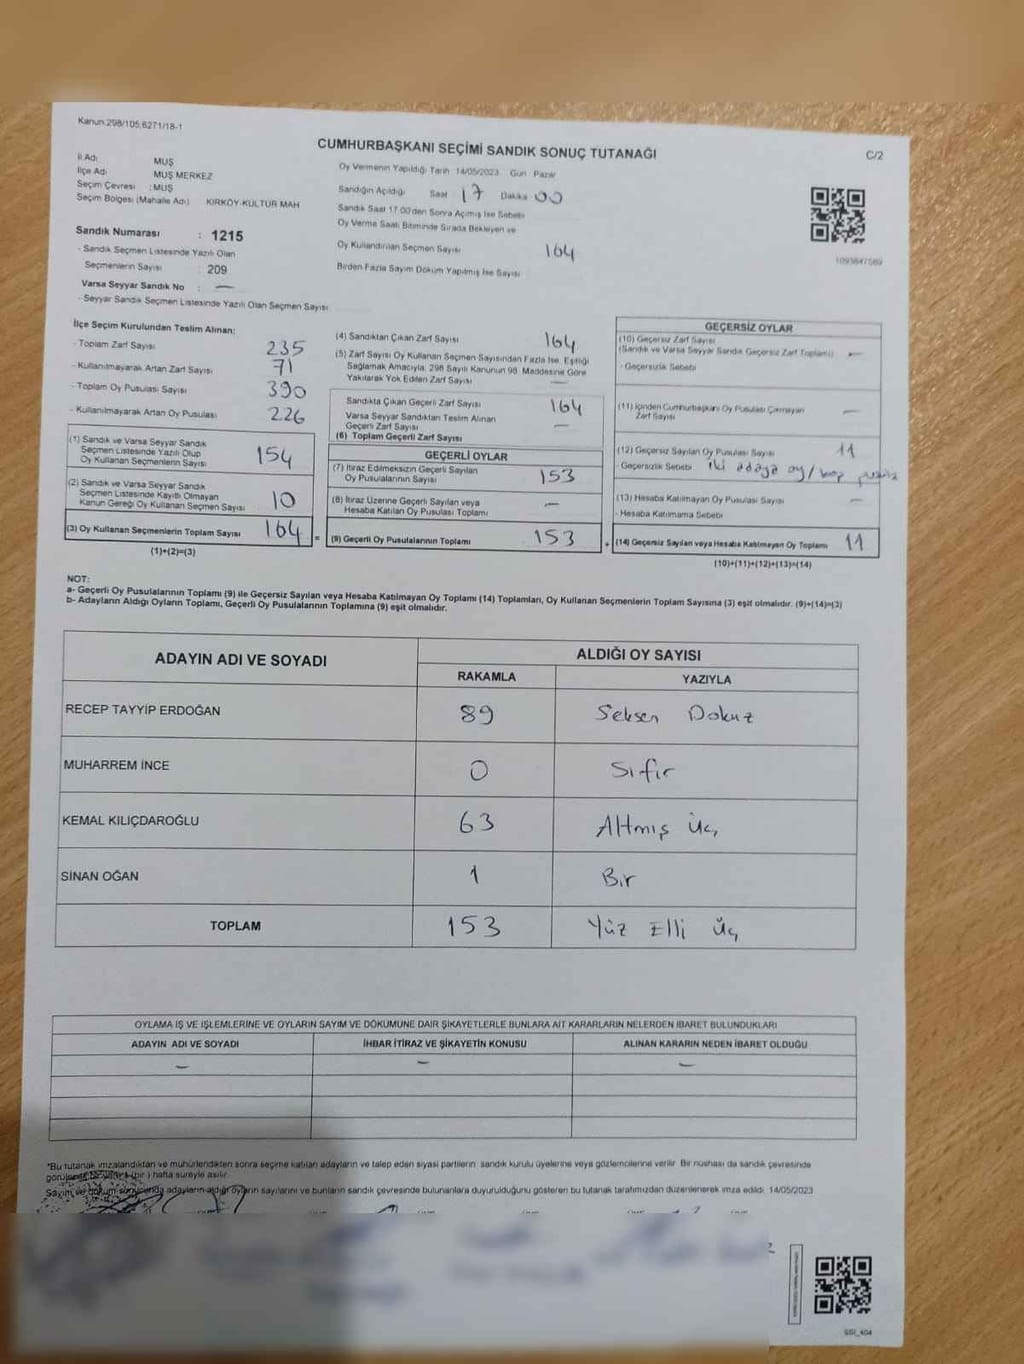 Kanun.298/105,6271/18-1
CUMHURBAŞKANI SEÇİMİ SANDIK SONUÇ TUTANAĞI
C/2
İl Adı MUŞ
İlçe Adı MUŞ MERKEZ
Seçim Çevresi :MUŞ
Seçim Bölgesi (Mahalle Adı) KIRKÖY-KÜLTÜR MAH
Sandık Numarası : 1215
- Sandık Seçmen Listesinde Yazılı Olan
Seçmenlerin Sayısı 209
Varsa Seyyar Sandık No : —
- Seyyar Sandık Seçmen Listesinde Yazılı Olan Seçmen Sayısı
Oy Vermenin Yapıldığı Tarih 14/05/2023 Gün Pazar
Sandığın Açıldığı Saat 17 Dakika 00
Sandık Saat 17.00'den Sonra Açılmış İse Sebebi
Oy Verme Saati Bitiminde Sırada Bekleyen ve
Oy Kullandırılan Seçmen Sayısı 164
Birden Fazla Sayım Döküm Yapılmış İse Sayısı
1093847569
İlçe Seçim Kurulundan Teslim Alınan:
- Toplam Zarf Sayısı 235
- Kullanılmayarak Artan Zarf Sayısı 71
- Toplam Oy Pusulası Sayısı 390
- Kullanılmayarak Artan Oy Pusulası 226
(1) Sandık ve Varsa Seyyar Sandık
Seçmen Listesinde Yazılı Olup
Oy Kullanan Seçmenlerin Sayısı 154
(2) Sandık ve Varsa Seyyar Sandık
Seçmen Listesinde Kayıtlı Olmayan
Kanun Gereği Oy Kullanan Seçmen Sayısı 10
(3) Oy Kullanan Seçmenlerin Toplam Sayısı 164
(1)+(2)=(3)
(4) Sandıktan Çıkan Zarf Sayısı 164
(5) Zarf Sayısı Oy Kullanan Seçmen Sayısından Fazla İse, Eşitliği
Sağlamak Amacıyla, 298 Sayılı Kanunun 98. Maddesine Göre
Yakılarak Yok Edilen Zarf Sayısı —
Sandıkta Çıkan Geçerli Zarf Sayısı 164
Varsa Seyyar Sandıktan Teslim Alınan
Geçerli Zarf Sayısı —
(6) Toplam Geçerli Zarf Sayısı
GEÇERLİ OYLAR
(7) İtiraz Edilmeksizin Geçerli Sayılan
Oy Pusulalarının Sayısı 153
(8) İtiraz Üzerine Geçerli Sayılan veya
Hesaba Katılan Oy Pusulası Toplamı —
= (9) Geçerli Oy Pusulalarının Toplamı 153
GEÇERSİZ OYLAR
(10) Geçersiz Zarf Sayısı
(Sandık ve Varsa Seyyar Sandık Geçersiz Zarf Toplamı) —
- Geçersizlik Sebebi
(11) İçinden Cumhurbaşkanı Oy Pusulası Çıkmayan
Zarf Sayısı —
(12) Geçersiz Sayılan Oy Pusulası Sayısı 11
- Geçersizlik Sebebi iki adaya oy /
(13) Hesaba Katılmayan Oy Pusulası Sayısı —
- Hesaba Katılmama Sebebi
+ (14) Geçersiz Sayılan veya Hesaba Katılmayan Oy Toplamı 11
(10)+(11)+(12)+(13)=(14)
NOT:
a- Geçerli Oy Pusulalarının Toplamı (9) ile Geçersiz Sayılan veya Hesaba Katılmayan Oy Toplamı (14) Toplamları, Oy Kullanan Seçmenlerin Toplam Sayısına (3) eşit olmalıdır. (9)+(14)=(3)
b- Adayların Aldığı Oyların Toplamı, Geçerli Oy Pusulalarının Toplamına (9) eşit olmalıdır.
ADAYIN ADI VE SOYADI
ALDIĞI OY SAYISI
RAKAMLA YAZIYLA
RECEP TAYYİP ERDOĞAN 89 Seksen Dokuz
MUHARREM İNCE 0 Sıfır
KEMAL KILIÇDAROĞLU 63 Altmış Üç
SİNAN OĞAN 1 Bir
TOPLAM 153 Yüz Elli Üç
OYLAMA İŞ VE İŞLEMLERİNE VE OYLARIN SAYIM VE DÖKÜMÜNE DAİR ŞİKAYETLERLE BUNLARA AİT KARARLARIN NELERDEN İBARET BULUNDUKLARI
ADAYIN ADI VE SOYADI İHBAR İTİRAZ VE ŞİKAYETİN KONUSU ALINAN KARARIN NEDEN İBARET OLDUĞU
— — —
*Bu tutanak imzalandıktan ve mühürlendikten sonra seçime katılan adayların ve talep eden siyasi partilerin sandık kurulu üyelerine veya gözlemcilerine verilir. Bir nüshası da sandık çevresinde
hafta süreyle asılır.
Sayım ve döküm sonucunda adayların aldığı oyların sayılarını ve bunların sandık çevresinde bulunanlara duyurulduğunu gösteren bu tutanak tarafımızdan düzenlenerek imza edildi. 14/05/2023